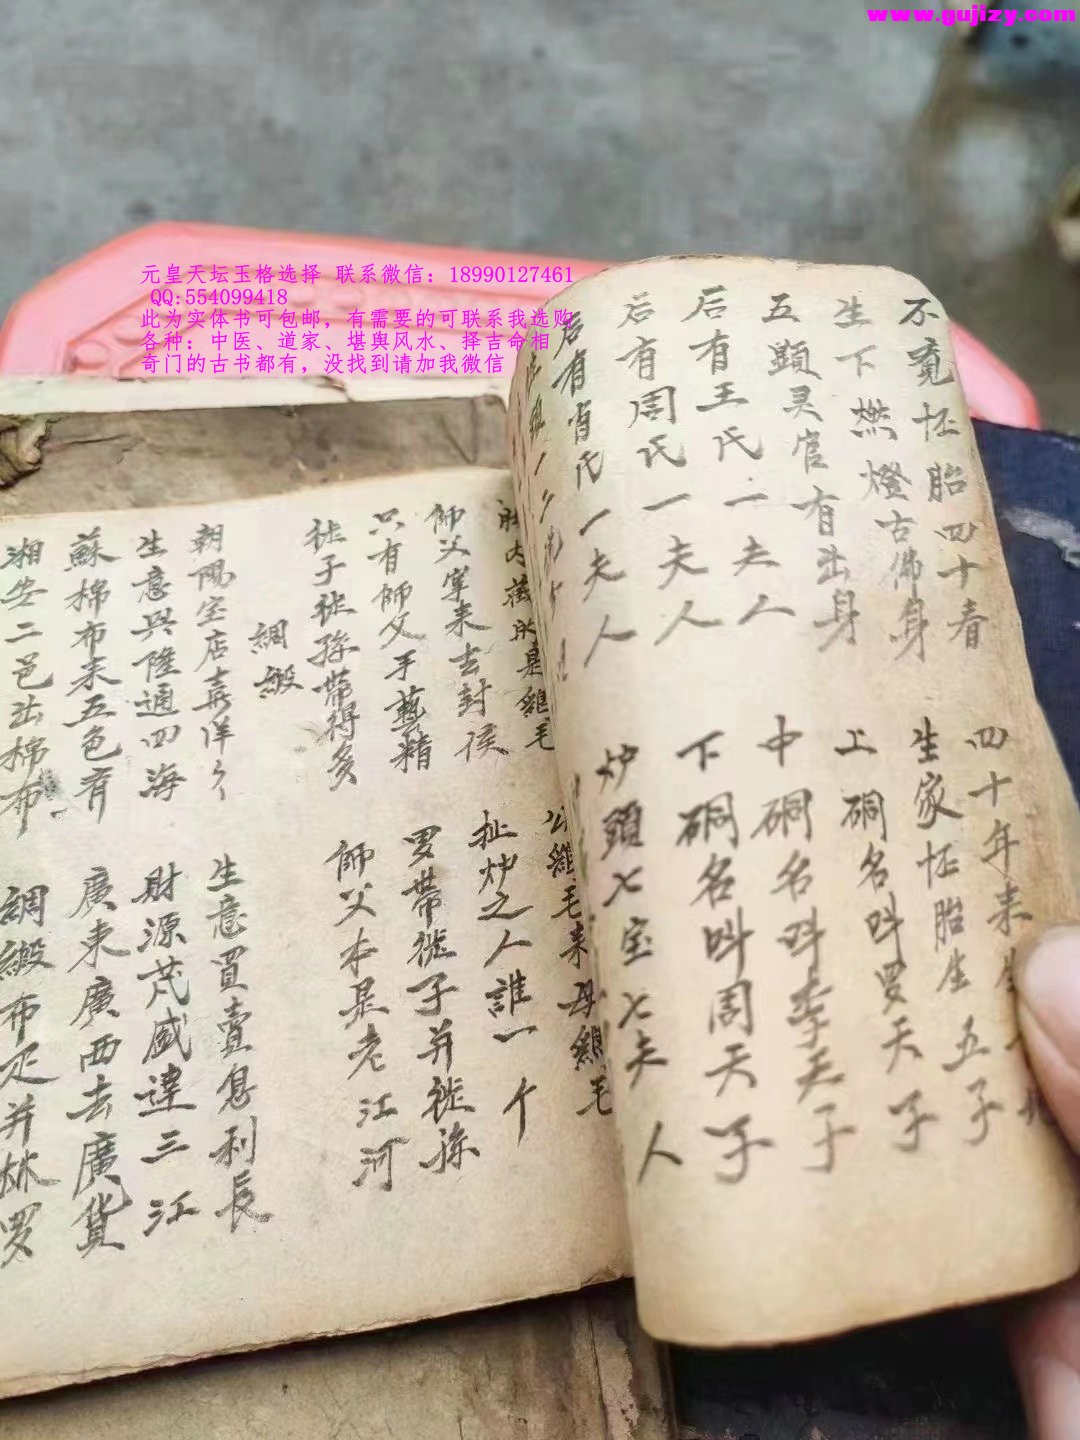 www.gujizy.com
元皇天坛玉格选择 联系微信：18990127461
QQ:554099418
此为实体书可包邮，有需要的可联系我选购
各种：中医、道家、堪舆风水、择吉命相
奇门的古书都有，没找到请加我微信
不覔怀胎四十春 四十年来生
生下燃燈古佛身 生家怀胎生五子
五顯灵官有出身 上硐名叫罗天子
后有王氏一夫人 中硐名叫李天子
后有周氏一夫人 下硐名叫周天子
后有肖氏一夫人 炉頭七宝七夫人
内藏的是雞毛 公雞毛来母雞毛
師父穿来去封侯 扯炉之人誰一个
只有師父手藝精 罗帶徒子并徒孫
徒子徒孫帶得多 師父本是老江河
綢緞
朝陽宝店喜洋々 生意買賣息利長
生意興隆通四海 財源茂盛達三江
蘇棉布来五色有 廣東廣西去廣貨
湘安二邑出棉布 綢緞布疋并林罗